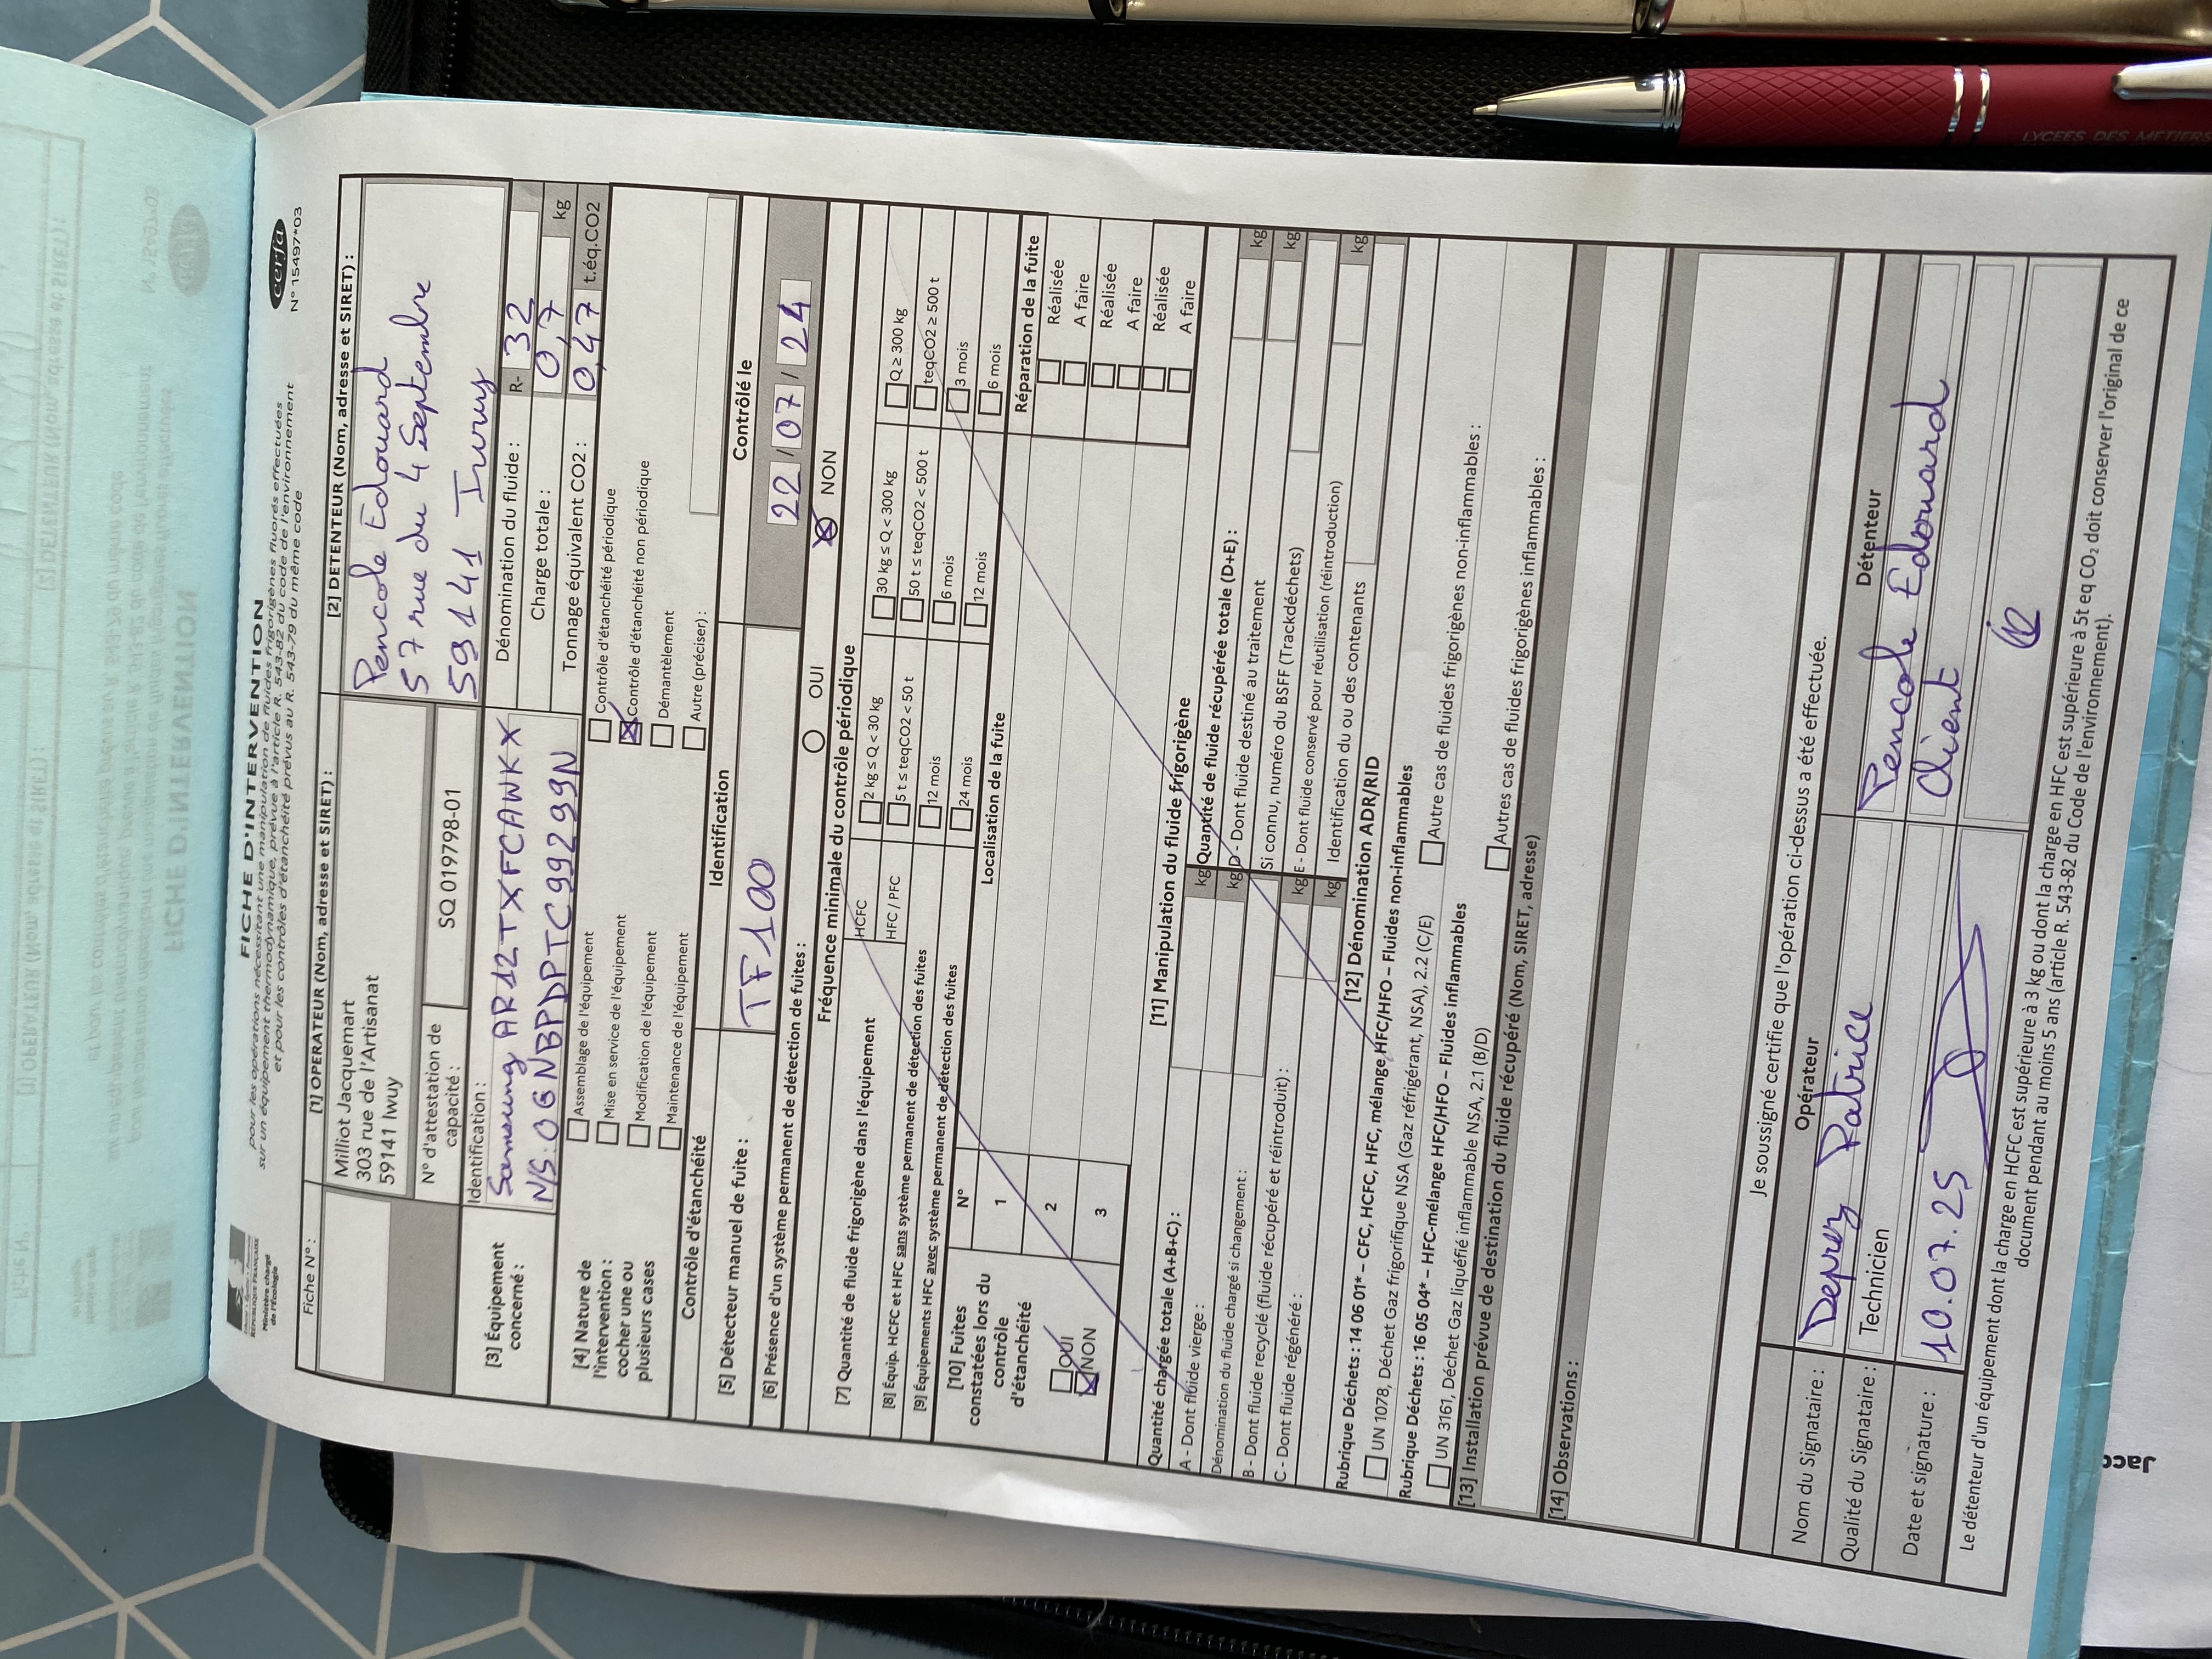 FICHE D'INTERVENTION
pour les opérations nécessitant une manipulation de fluides frigorigènes fluorés effectuées
sur un équipement thermodynamique, prévue à l'article R. 543-82 du code de l'environnement
et pour les contrôles d'étanchéité prévus au R. 543-79 du même code
Ministère chargé
de l'Écologie
cerfa
N° 15497*03
Fiche N° :
[1] OPERATEUR (Nom, adresse et SIRET) :
Milliot Jacquemart
303 rue de l'Artisanat
59141 Iwuy
N° d'attestation de
capacité :
SQ 019798-01
[2] DETENTEUR (Nom, adresse et SIRET) :
Pencole Edouard
57 rue du 4 Septembre
59141 Iwuy
[3] Équipement
concerné :
Identification :
Samsung AR12TXFCAWKX
N/S: 0GNBPDPTC99299N
Dénomination du fluide :
R- 32
Charge totale :
0,7 kg
Tonnage équivalent CO2 :
0,47 t.éq.CO2
[4] Nature de
l'intervention :
cocher une ou
plusieurs cases
Assemblage de l'équipement
Mise en service de l'équipement
Modification de l'équipement
Maintenance de l'équipement
Contrôle d'étanchéité périodique
Contrôle d'étanchéité non périodique
Démantèlement
Autre (préciser) :
Contrôle d'étanchéité
Identification
Contrôlé le
[5] Détecteur manuel de fuite :
TF100
22 / 07 / 24
[6] Présence d'un système permanent de détection de fuites :
OUI
NON
Fréquence minimale du contrôle périodique
[7] Quantité de fluide frigorigène dans l'équipement
HCFC
2 kg ≤ Q < 30 kg
30 kg ≤ Q < 300 kg
Q ≥ 300 kg
HFC / PFC
5 t ≤ teqCO2 < 50 t
50 t ≤ teqCO2 < 500 t
teqCO2 ≥ 500 t
[8] Équip. HCFC et HFC sans système permanent de détection des fuites
12 mois
6 mois
3 mois
[9] Équipements HFC avec système permanent de détection des fuites
24 mois
12 mois
6 mois
[10] Fuites
constatées lors du
contrôle
d'étanchéité
OUI
NON
N°
Localisation de la fuite
Réparation de la fuite
1
Réalisée
A faire
2
Réalisée
A faire
3
Réalisée
A faire
[11] Manipulation du fluide frigorigène
Quantité chargée totale (A+B+C) :
kg
A - Dont fluide vierge :
kg
Dénomination du fluide chargé si changement :
B - Dont fluide recyclé (fluide récupéré et réintroduit) :
kg
C - Dont fluide régénéré :
kg
Quantité de fluide récupérée totale (D+E) :
kg
D - Dont fluide destiné au traitement
kg
Si connu, numéro du BSFF (Trackdéchets)
E - Dont fluide conservé pour réutilisation (réintroduction)
kg
Identification du ou des contenants
[12] Dénomination ADR/RID
Rubrique Déchets : 14 06 01* – CFC, HCFC, HFC, mélange HFC/HFO – Fluides non-inflammables
UN 1078, Déchet Gaz frigorifique NSA (Gaz réfrigérant, NSA), 2.2 (C/E)
Autre cas de fluides frigorigènes non-inflammables :
Rubrique Déchets : 16 05 04* – HFC-mélange HFC/HFO – Fluides inflammables
UN 3161, Déchet Gaz liquéfié inflammable NSA, 2.1 (B/D)
Autres cas de fluides frigorigènes inflammables :
[13] Installation prévue de destination du fluide récupéré (Nom, SIRET, adresse)
[14] Observations :
Je soussigné certifie que l'opération ci-dessus a été effectuée.
Opérateur
Détenteur
Nom du Signataire :
Deprez Patrice
Pencole Edouard
Qualité du Signataire :
Technicien
Client
Date et signature :
10.07.25
Le détenteur d'un équipement dont la charge en HCFC est supérieure à 3 kg ou dont la charge en HFC est supérieure à 5t eq CO₂ doit conserver l'original de ce
document pendant au moins 5 ans (article R. 543-82 du Code de l'environnement).
LYCEES DES METIERS
Jacq